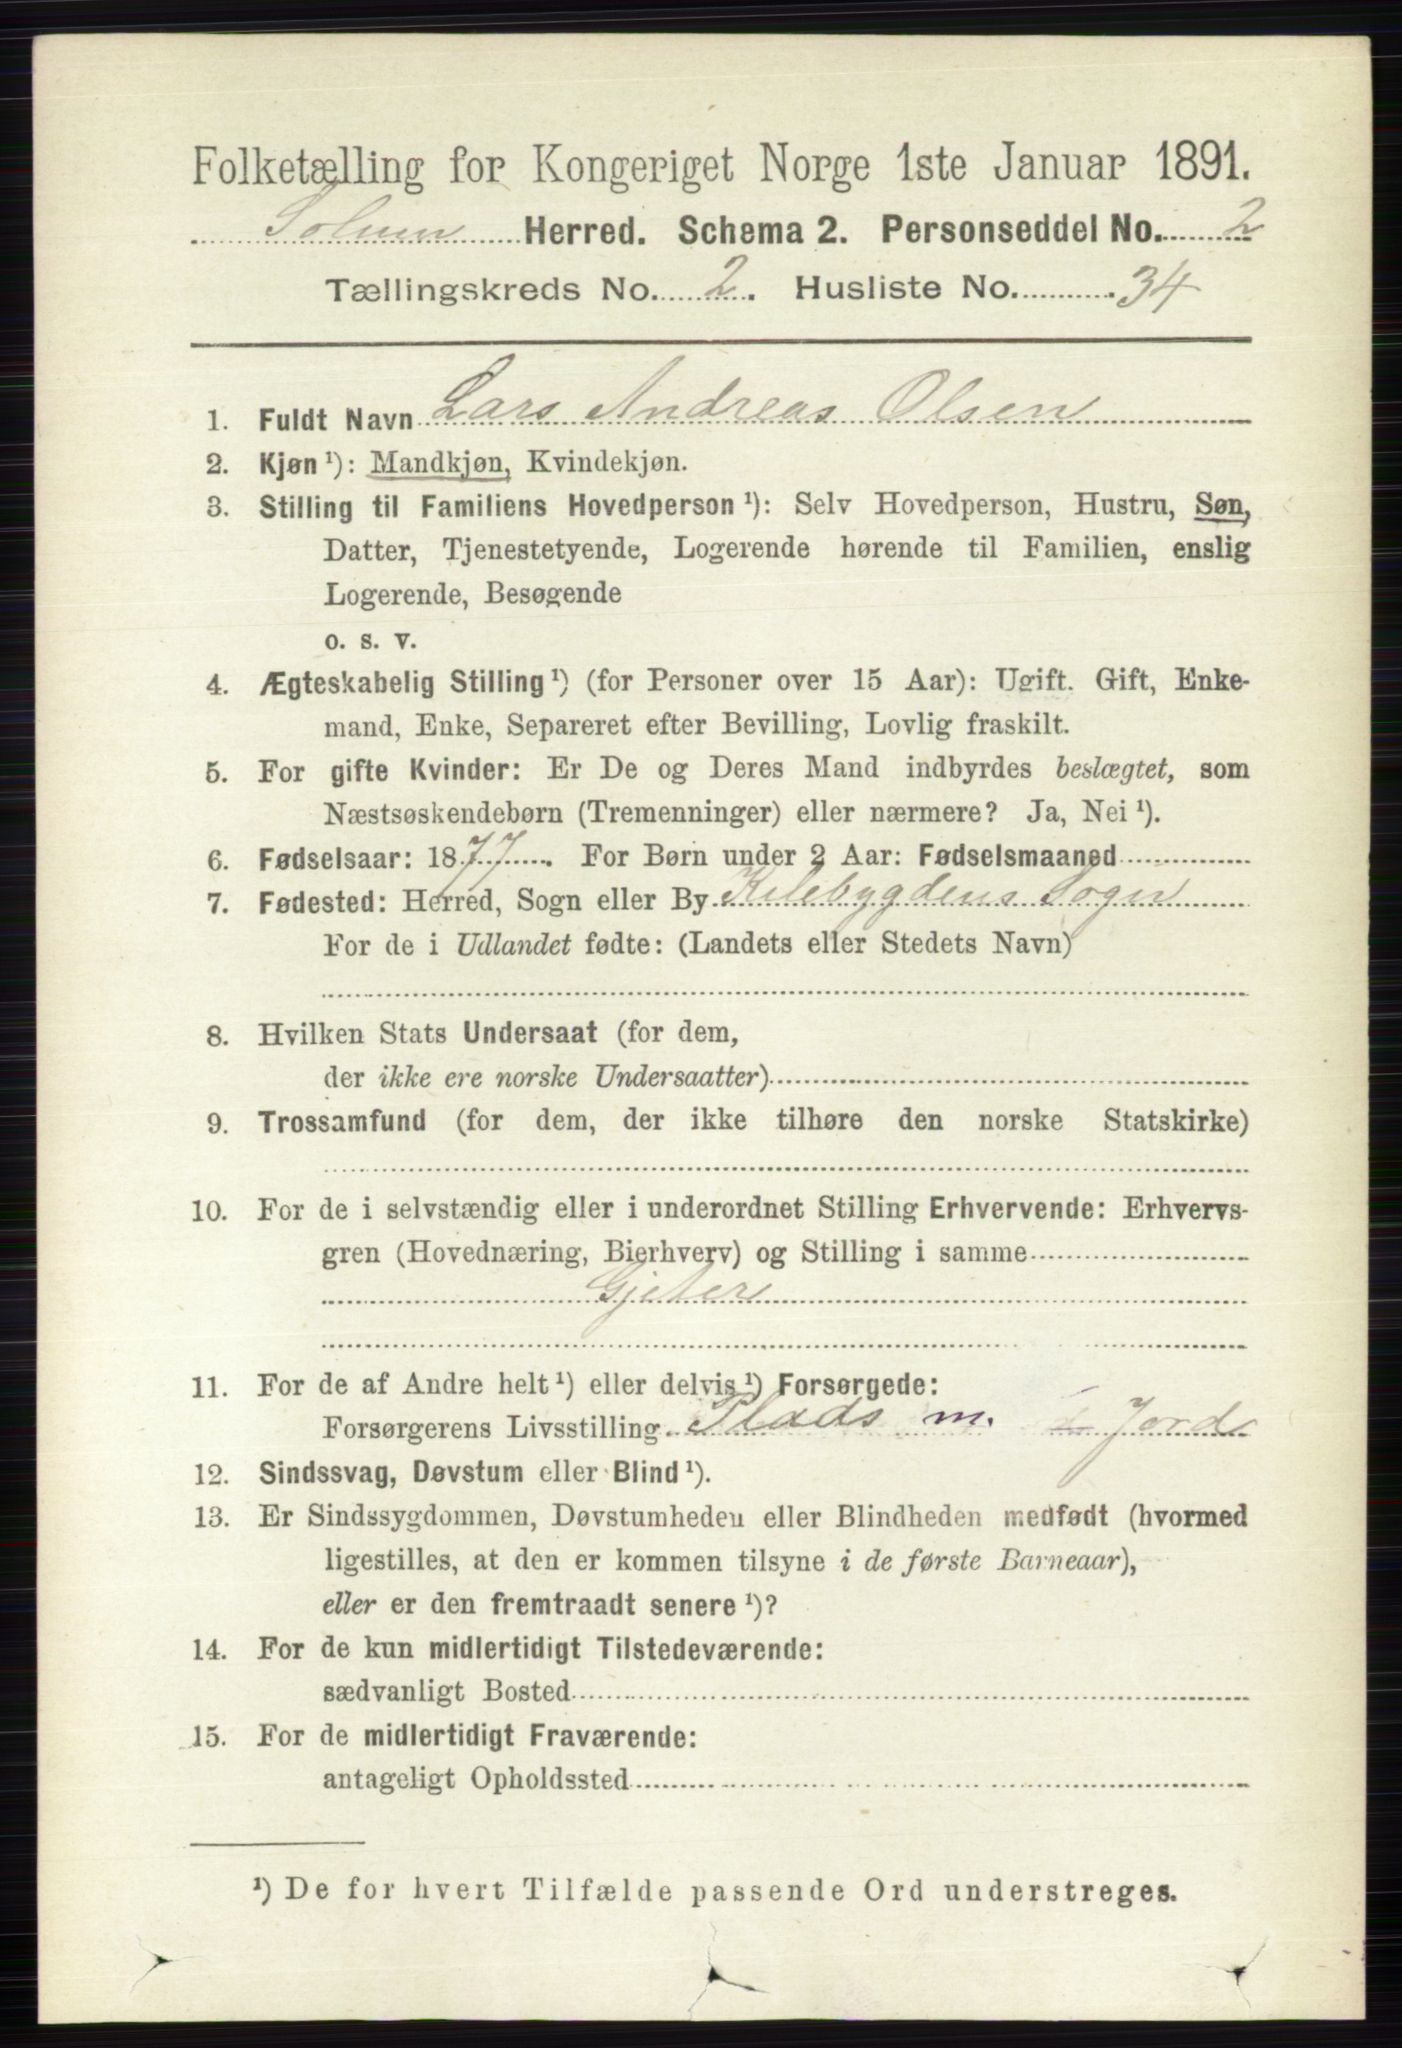 Folketælling for Kongeriget Norge 1ste Januar 1891.
Solum Herred. Schema 2. Personseddel No. 2
Tællingskreds No. 2. Husliste No. 34
1. Fuldt Navn Lars Andreas Olsen
2. Kjøn ¹): Mandkjøn, Kvindekjøn.
3. Stilling til Familiens Hovedperson ¹): Selv Hovedperson, Hustru, Søn,
Datter, Tjenestetyende, Logerende hørende til Familien, enslig
Logerende, Besøgende
o. s. v.
4. Ægteskabelig Stilling ¹) (for Personer over 15 Aar): Ugift. Gift, Enke-
mand, Enke, Separeret efter Bevilling, Lovlig fraskilt.
5. For gifte Kvinder: Er De og Deres Mand indbyrdes beslægtet, som
Næstsøskendebørn (Tremenninger) eller nærmere? Ja, Nei ¹).
6. Fødselsaar: 1877. For Børn under 2 Aar: Fødselsmaaned
7. Fødested: Herred, Sogn eller By Kilebygdens Sogn
For de i Udlandet fødte: (Landets eller Stedets Navn)
8. Hvilken Stats Undersaat (for dem,
der ikke ere norske Undersaatter)
9. Trossamfund (for dem, der ikke tilhøre den norske Statskirke)
10. For de i selvstændig eller i underordnet Stilling Erhvervende: Erhvervs-
gren (Hovednæring, Bierhverv) og Stilling i samme
Gjeter
11. For de af Andre helt ¹) eller delvis ¹) Forsørgede:
Forsørgerens Livsstilling Plads m. Jord
12. Sindssvag, Døvstum eller Blind ¹).
13. Er Sindssygdommen, Døvstumheden eller Blindheden medfødt (hvormed
ligestilles, at den er kommen tilsyne i de første Barneaar),
eller er den fremtraadt senere ¹)?
14. For de kun midlertidigt Tilstedeværende:
sædvanligt Bosted
15. For de midlertidigt Fraværende:
antageligt Opholdssted
¹) De for hvert Tilfælde passende Ord understreges.